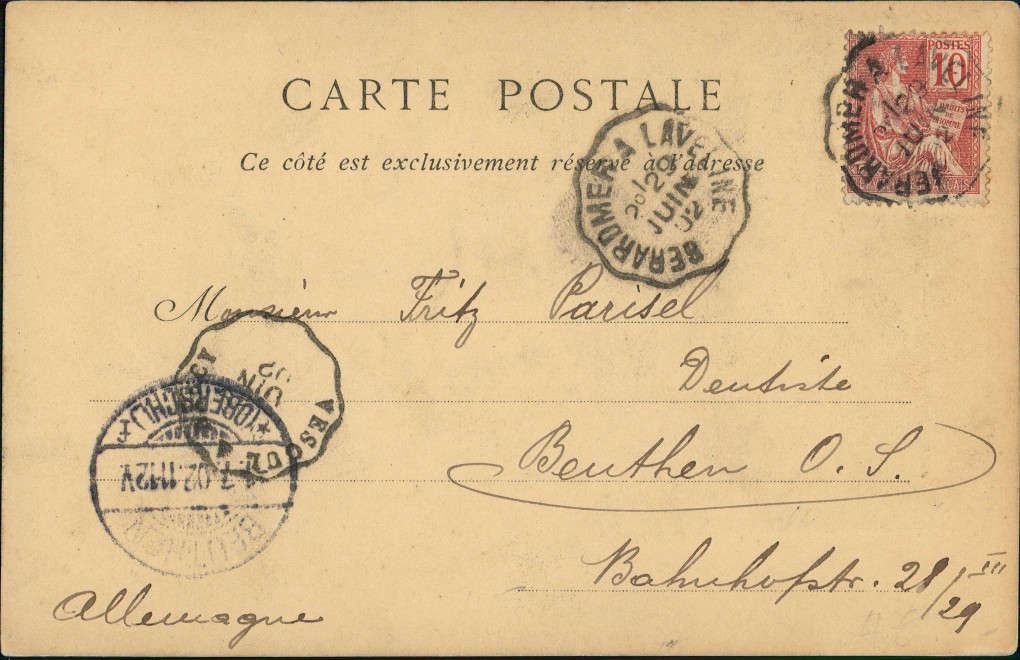 POSTES
10
DROITS DE L'HOMME
FRANÇAISE
CARTE POSTALE
Ce côté est exclusivement réservé à l'adresse
GERARDMER A LAVELINE
29 JUIN 02
Monsieur Fritz Parisel
Dentiste
Beuthen O. S.
Bahnhofstr. 28/29 III
Allemagne
VESOUL
UIN 02
BEUTHEN
7.02.11-12V.
*(OBERSCHL.)*